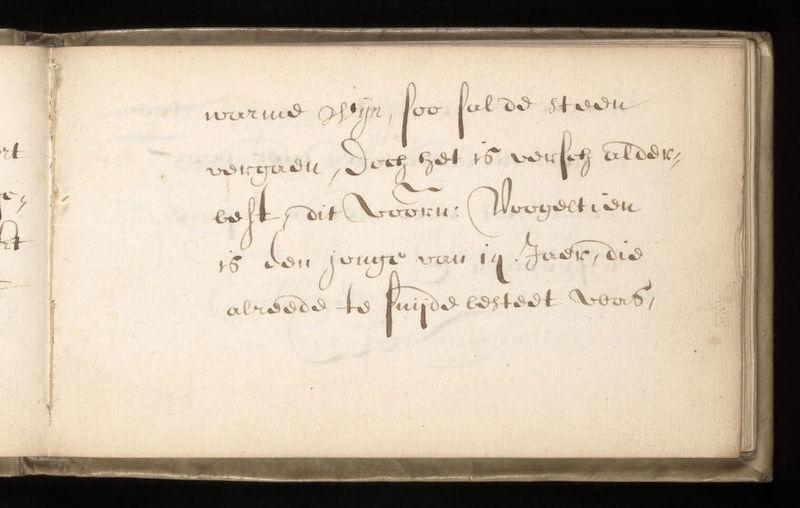 warme Wijn, soo sal de steen
vergaen, Doch het is versch alder=
best, dit Voorn: Voogeltien
is den jonge van Jaer, die
alreede te snijde besteet was,